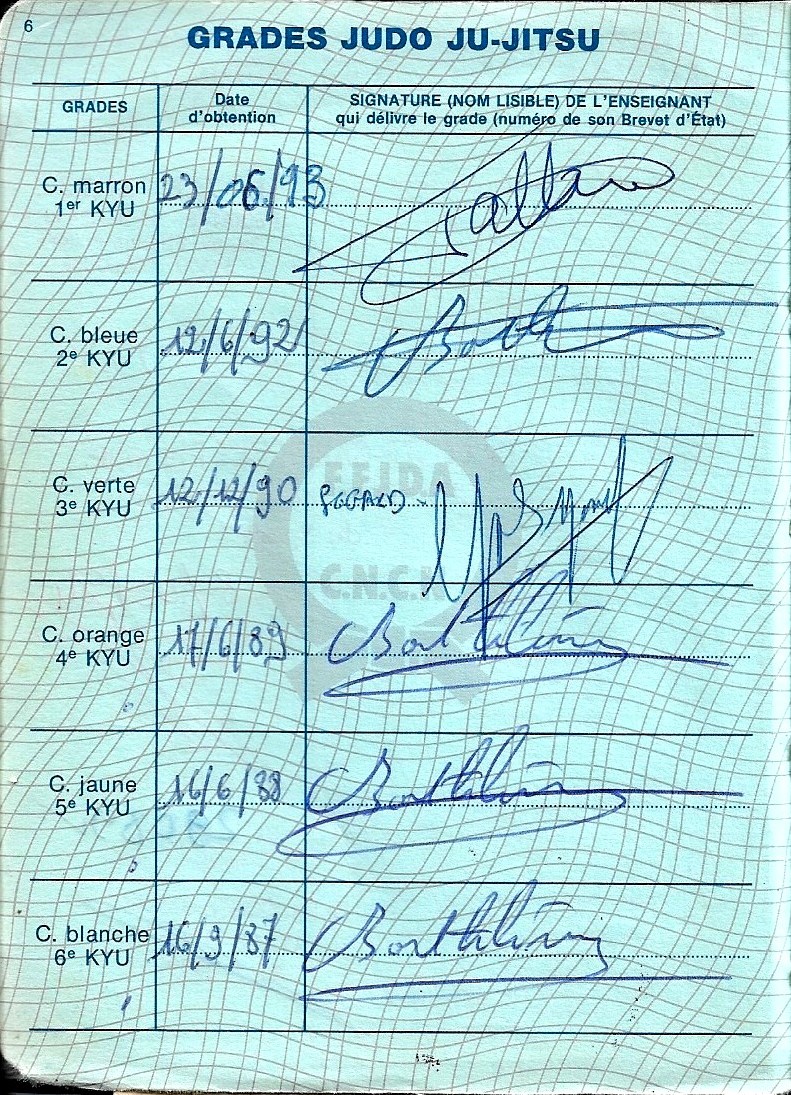 6
GRADES JUDO JU-JITSU
GRADES
Date
d'obtention
SIGNATURE (NOM LISIBLE) DE L'ENSEIGNANT
qui délivre le grade (numéro de son Brevet d'État)
C. marron
1er KYU
23/06/93
C. bleue
2e KYU
12/6/92
C. verte
3e KYU
12/12/90
FFJDA
C. orange
4e KYU
17/6/89
C. jaune
5e KYU
16/6/88
C. blanche
6e KYU
16/9/87